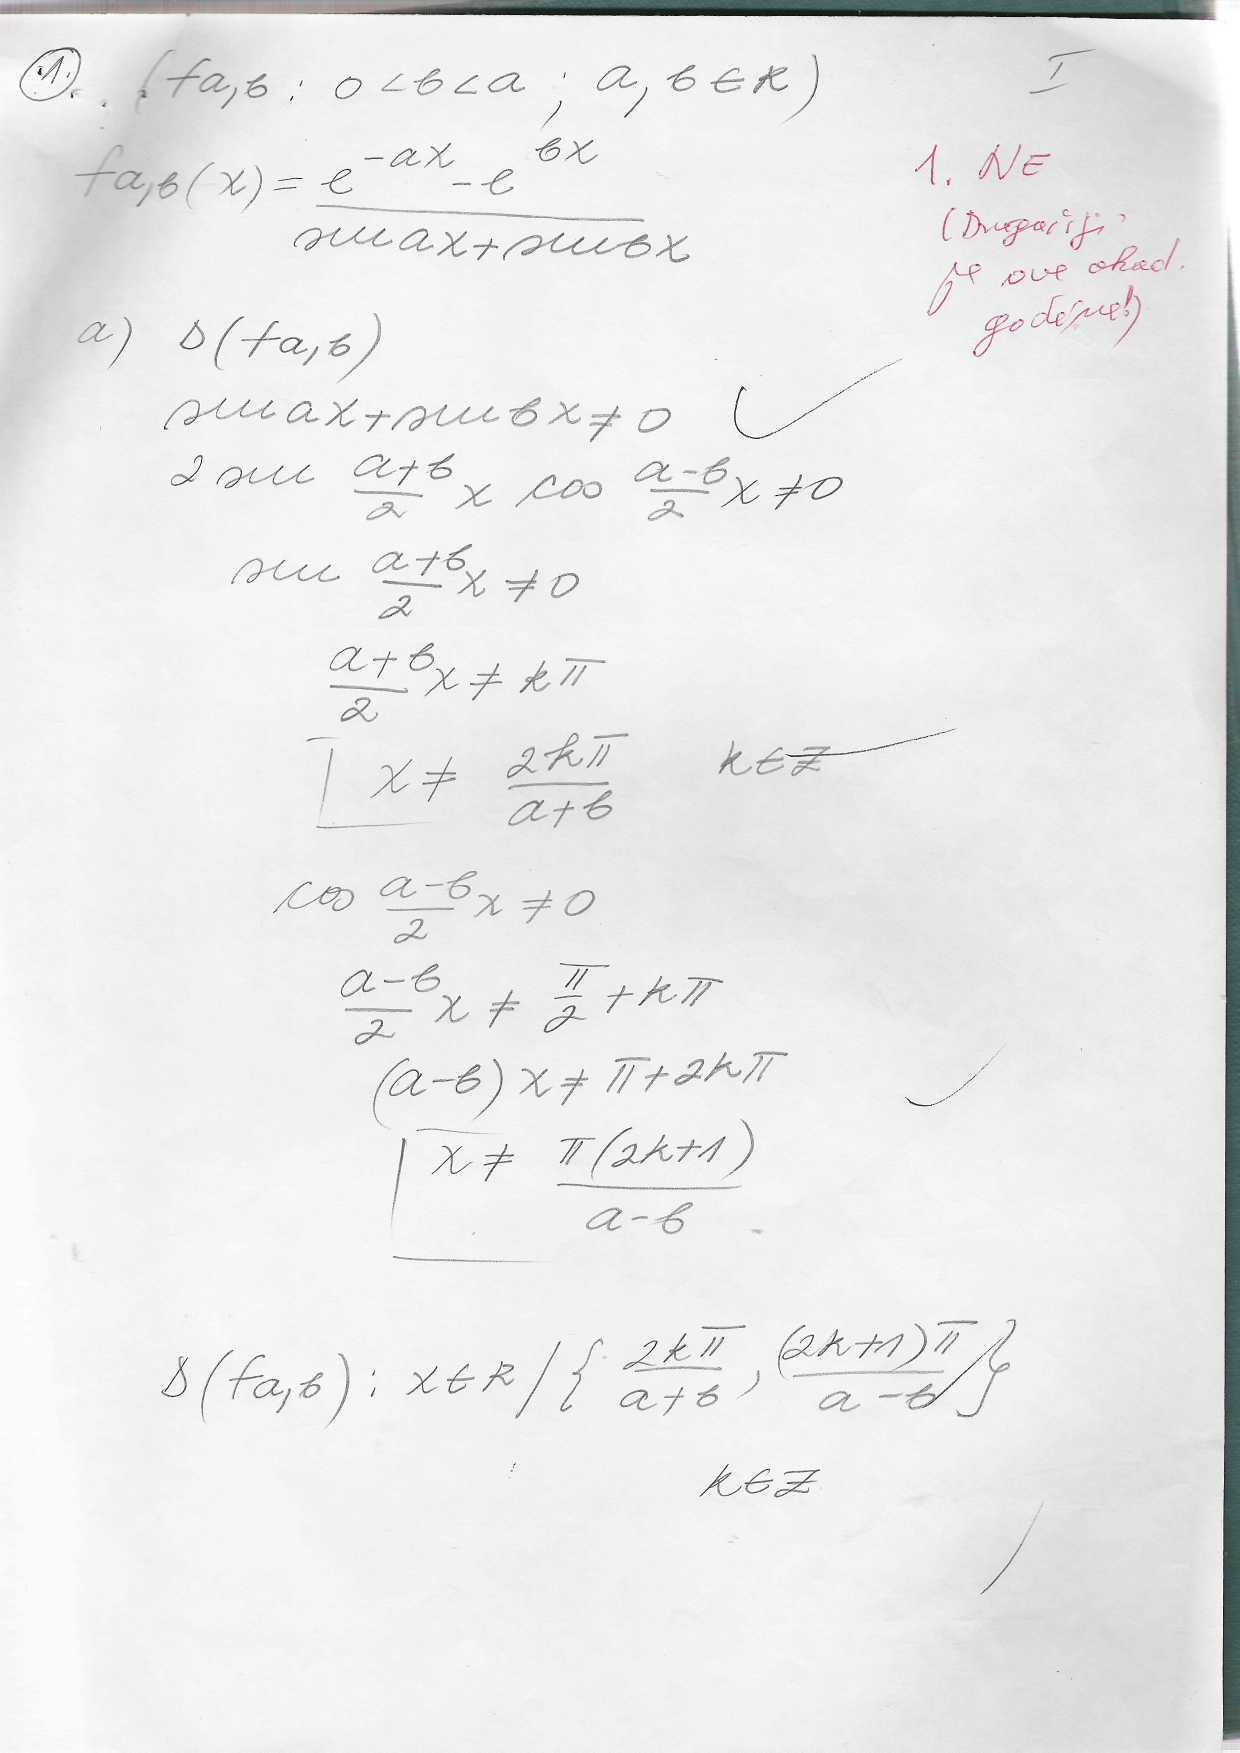 1. (fa,b : 0<b<a ; a, b ∈ R)
I
fa,b(x) = \frac{e^{-ax} - e^{bx}}{sin ax + sin bx}
1. NE
(Drugačiji
je ove akad.
godine!)
a) D(fa,b)
sin ax + sin bx ≠ 0
2 sin \frac{a+b}{2} x cos \frac{a-b}{2} x ≠ 0
sin \frac{a+b}{2} x ≠ 0
\frac{a+b}{2} x ≠ kπ
x ≠ \frac{2kπ}{a+b} k ∈ Z
cos \frac{a-b}{2} x ≠ 0
\frac{a-b}{2} x ≠ \frac{π}{2} + kπ
(a-b) x ≠ π + 2kπ
x ≠ \frac{π(2k+1)}{a-b}
D(fa,b) : x ∈ R / { \frac{2kπ}{a+b}, \frac{(2k+1)π}{a-b} }
k ∈ Z